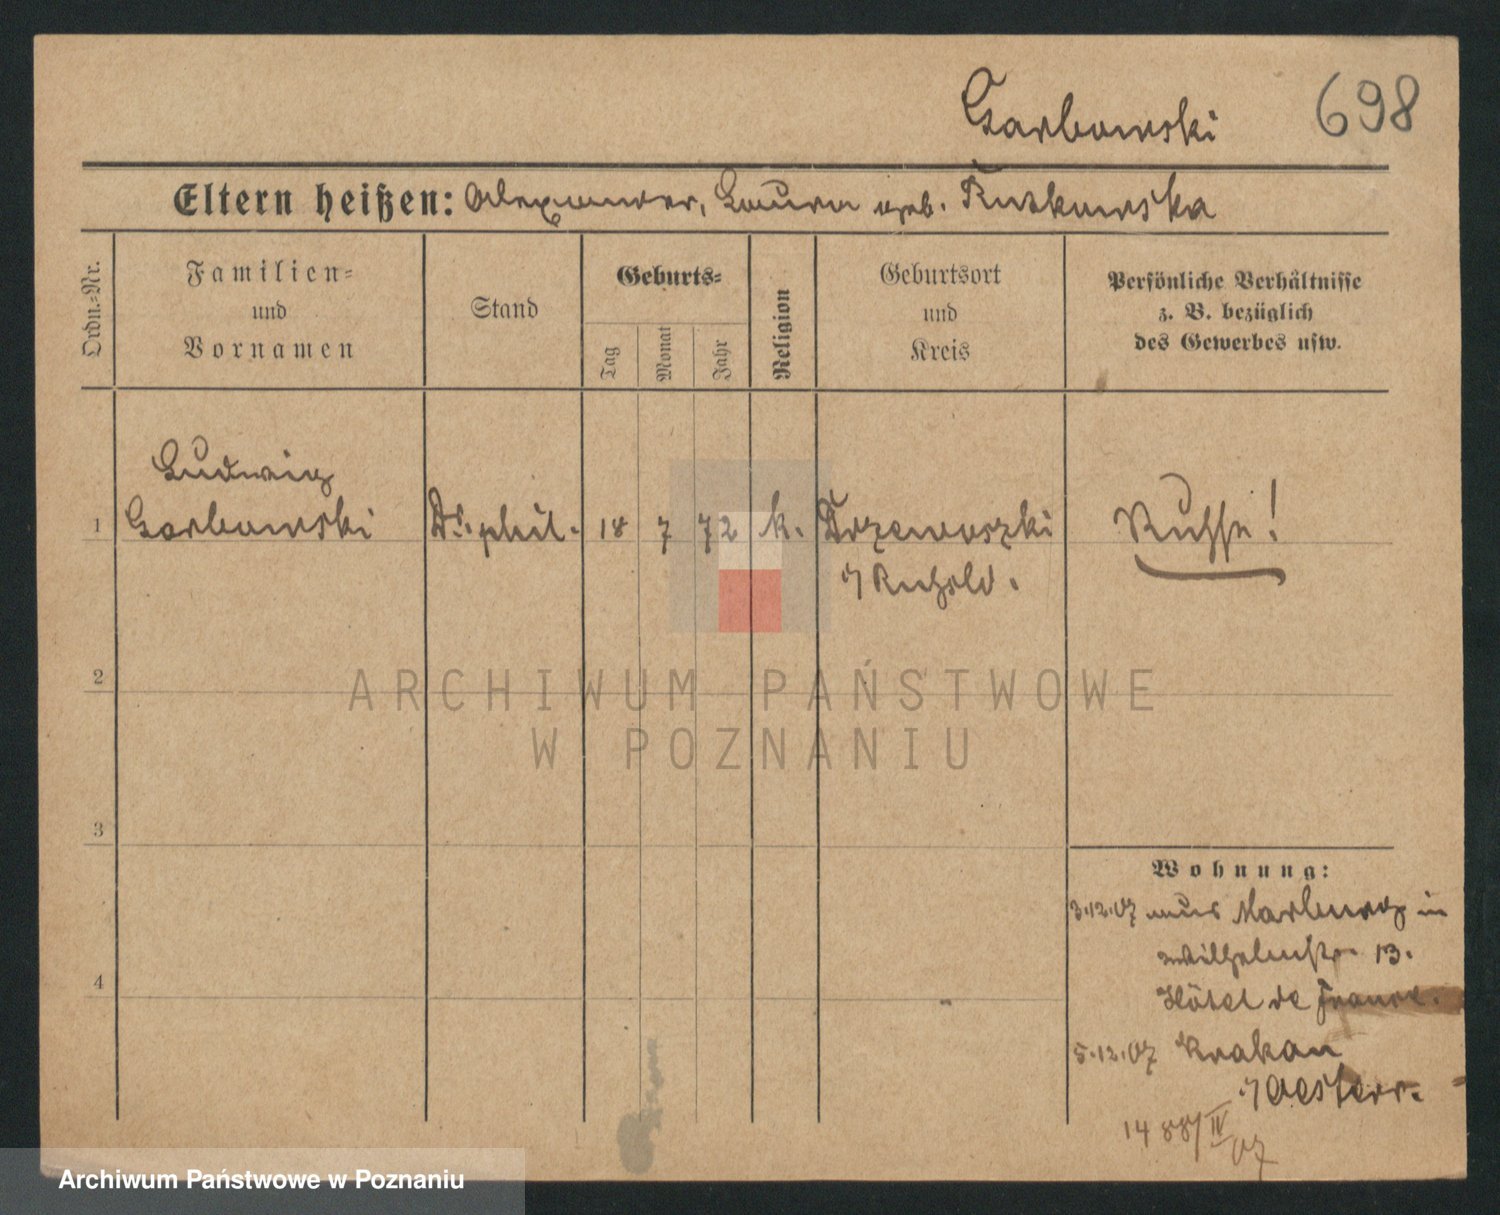 Garbowski 698
Eltern heißen: Alexander, Laura geb. Rutkowska
Ordn.-Nr.
Familien-
und
Vornamen
Stand
Geburts-
Tag
Monat
Jahr
Religion
Geburtsort
und
Kreis
Persönliche Verhältnisse
z. B. bezüglich
des Gewerbes usw.
Ludwig
1 Garbowski Dr. phil. 18 7 72 k. Russe!
i/Rußld.
2
3
4
Wohnung:
3.12.07 aus Marburg in
Wilhelmstr. 13.
Hôtel de France.
5.12.07 Krakau
i/Oesterr.
1488/IV
07
ARCHIWUM PAŃSTWOWE
W POZNANIU
Archiwum Państwowe w Poznaniu